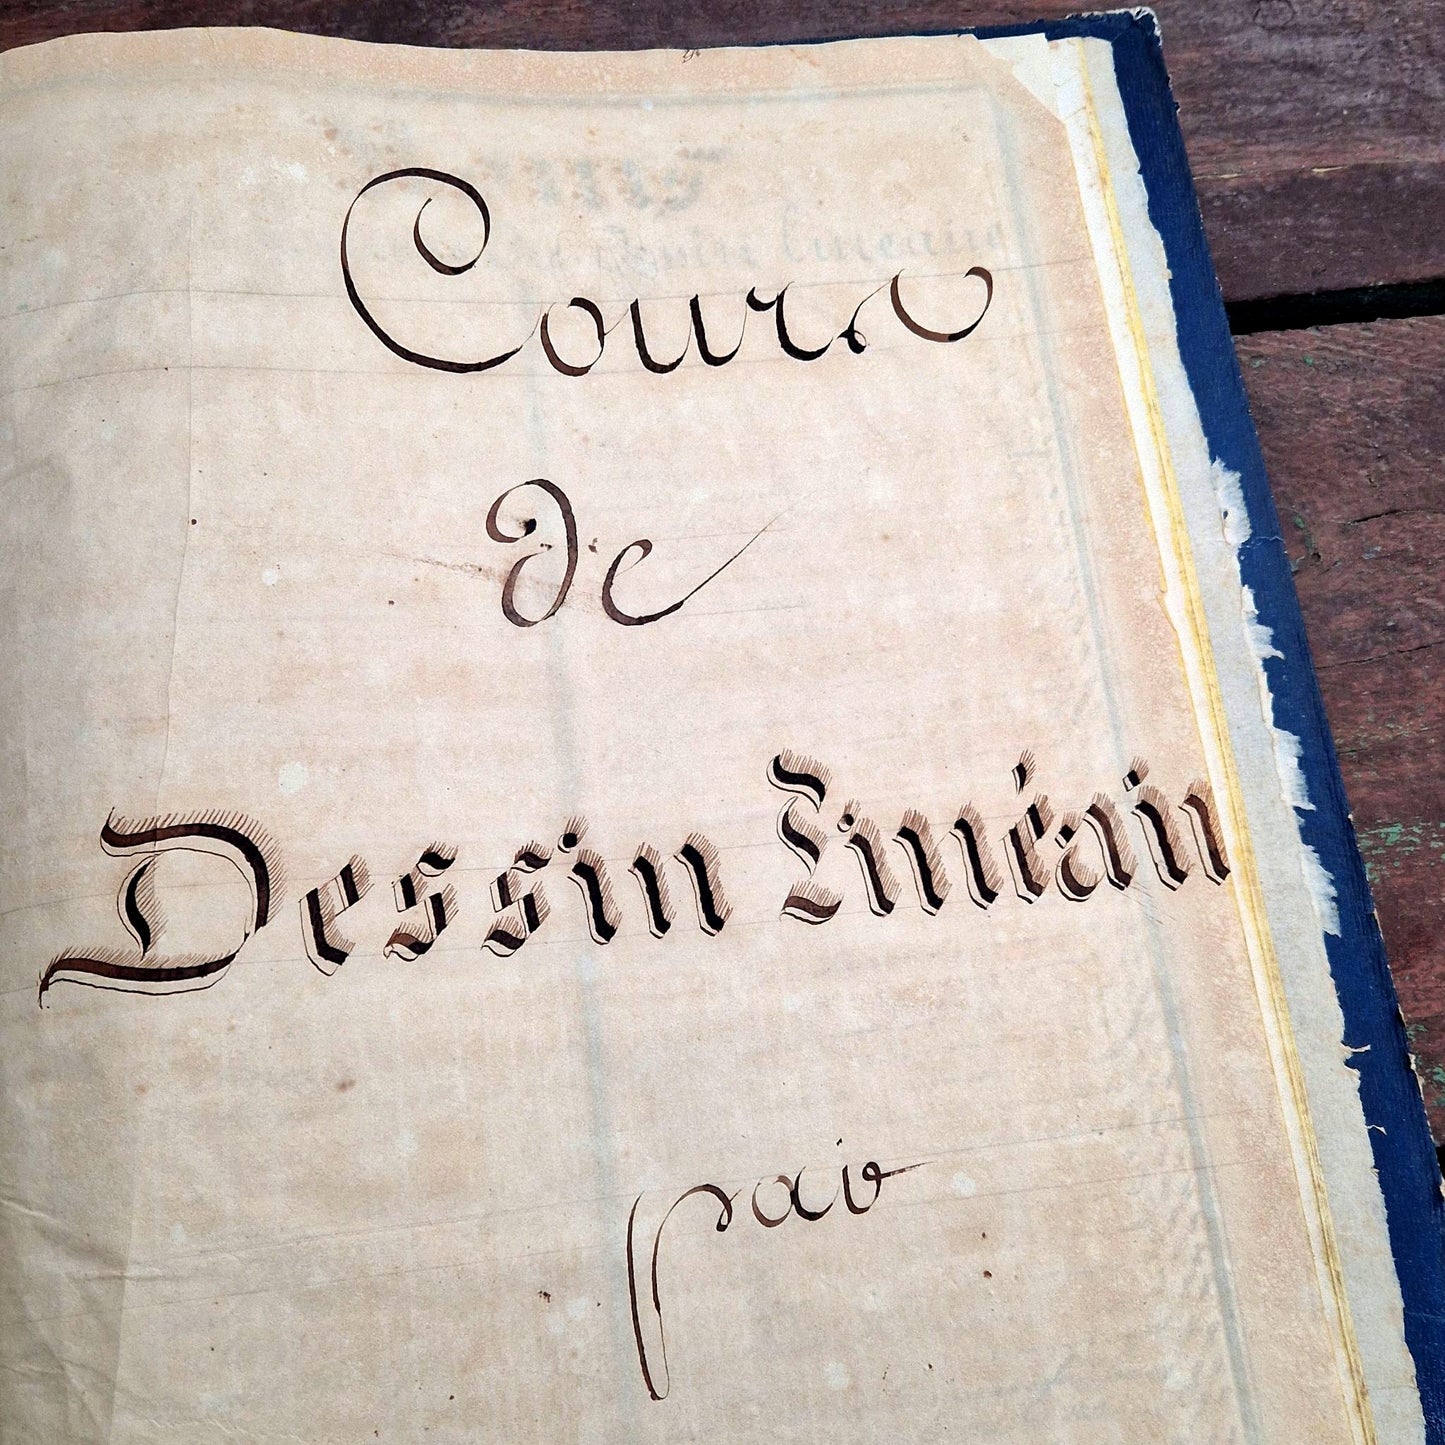 Cours
de
Dessin Linéain
par